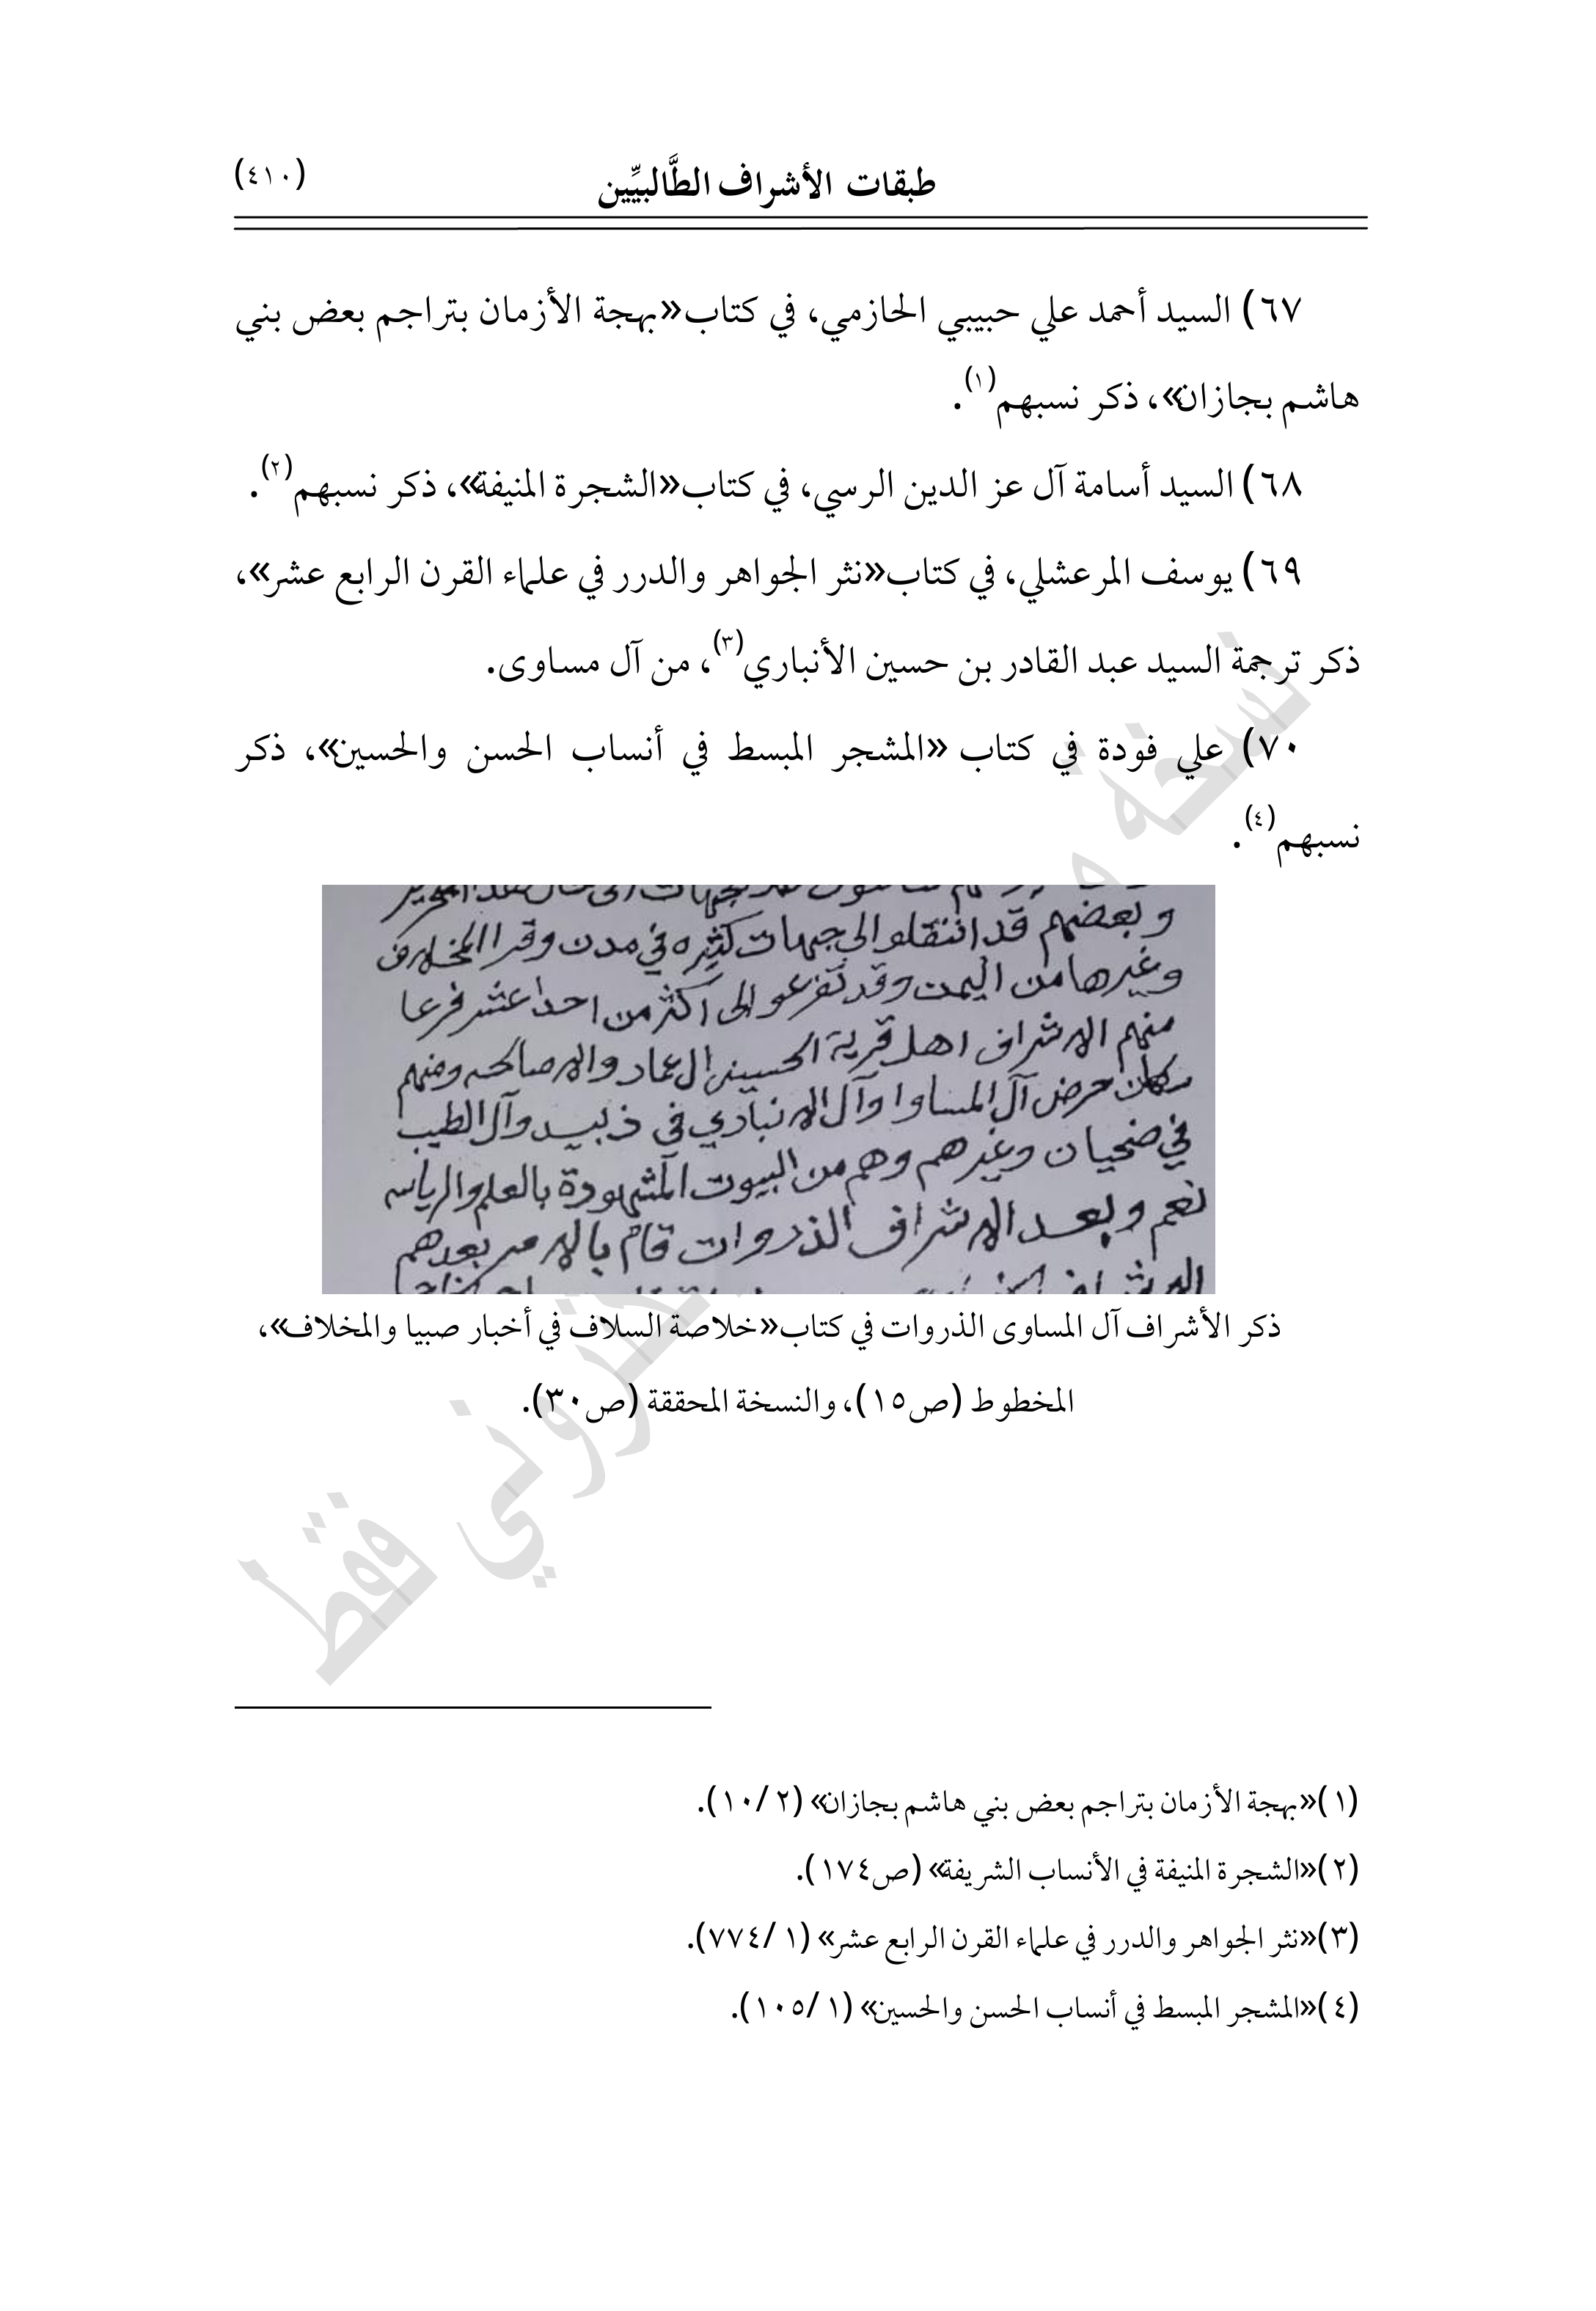 طبقات الأشراف الطَّالبيِّين
(٤١٠)
٦٧) السيد أحمد علي حبيبي الحازمي، في كتاب «بهجة الأزمان بتراجم بعض بني
هاشم بجازان»، ذكر نسبهم(١).
٦٨) السيد أسامة آل عز الدين الرسي، في كتاب «الشجرة المنيفة»، ذكر نسبهم(٢).
٦٩) يوسف المرعشلي، في كتاب «نثر الجواهر والدرر في علماء القرن الرابع عشر»،
ذكر ترجمة السيد عبد القادر بن حسين الأنباري(٣)، من آل مساوى.
٧٠) علي فودة في كتاب «المشجر المبسط في أنساب الحسن والحسين»، ذكر
نسبهم(٤).
وبعضهم قد انتقلو الى جهات كثيره في مدن وقرا المخلاف
وغيرها من اليمن وقد تفرعو الى اكثر من احدا عشر فرعا
منهم الاشراف اهل قرية الحسيني ال عمار والاصالحه ومنهم
سكان حرض آل المساوا وآل الانباري في زبيد وآل الطيب
في ضحيان وغيرهم وهم من البيوت المشهودة بالعلم والرياسه
نعم وبعد الاشراف الذروات قام بالامر بعدهم
ذكر الأشراف آل المساوى الذروات في كتاب «خلاصة السلاف في أخبار صبيا والمخلاف»،
المخطوط (ص١٥)، والنسخة المحققة (ص٣٠).
(١) «بهجة الأزمان بتراجم بعض بني هاشم بجازان» (٢/ ١٠).
(٢) «الشجرة المنيفة في الأنساب الشريفة» (ص١٧٤).
(٣) «نثر الجواهر والدرر في علماء القرن الرابع عشر» (١/ ٧٧٤).
(٤) «المشجر المبسط في أنساب الحسن والحسين» (١/ ١٠٥).
نسخة
فقط